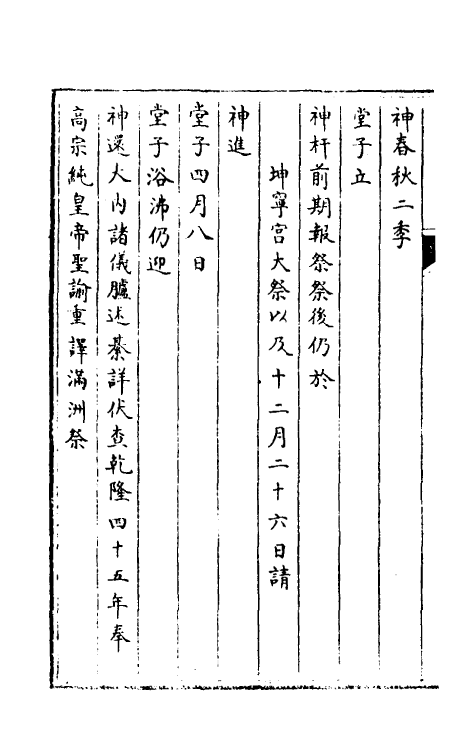 神春秋二季
堂子立
神杆前期報祭祭後仍於
坤寧宮大祭以及十二月二十六日請
神進
堂子四月八日
堂子浴沸仍迎
神還大內諸儀臚述綦詳伏查乾隆四十五年奉
高宗純皇帝聖諭重譯滿洲祭